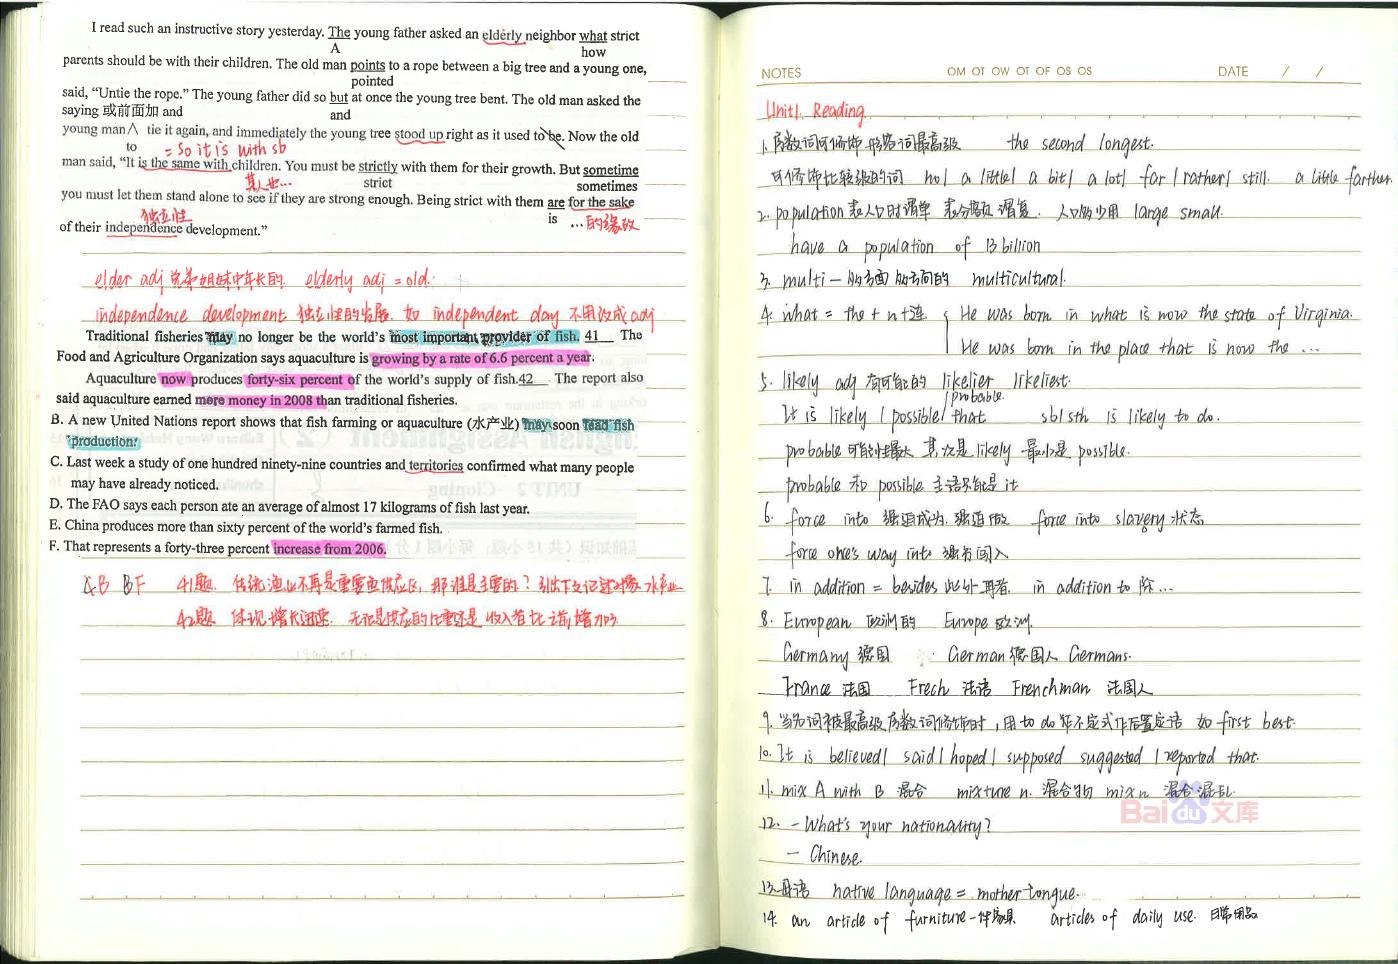 I read such an instructive story yesterday. The young father asked an elderly neighbor what strict
A how
parents should be with their children. The old man points to a rope between a big tree and a young one,
pointed
said, “Untie the rope.” The young father did so but at once the young tree bent. The old man asked the
saying 或前面加 and and
young man∧ tie it again, and immediately the young tree stood up right as it used to be. Now the old
to = so it is with sb
man said, “It is the same with children. You must be strictly with them for their growth. But sometime
某人也… strict sometimes
you must let them stand alone to see if they are strong enough. Being strict with them are for the sake
独立性 is …的缘故
of their independence development.”
elder adj 兄弟姐妹中年长的. elderly adj = old.
independence development 独立性的发展. 如 independent day 不用改成 adj
Traditional fisheries may no longer be the world’s most important provider of fish. 41__ The
Food and Agriculture Organization says aquaculture is growing by a rate of 6.6 percent a year.
Aquaculture now produces forty-six percent of the world’s supply of fish.42__ The report also
said aquaculture earned more money in 2008 than traditional fisheries.
B. A new United Nations report shows that fish farming or aquaculture (水产业) may soon lead fish
production.
C. Last week a study of one hundred ninety-nine countries and territories confirmed what many people
may have already noticed.
D. The FAO says each person ate an average of almost 17 kilograms of fish last year.
E. China produces more than sixty percent of the world’s farmed fish.
F. That represents a forty-three percent increase from 2006.
B F 41题. 传统渔业不再是重要鱼供应区, 那谁是主要的? 引出下文记述对象 水产业
42题. 体现增长迅速. 无论是供应的比重还是收入若比前增加
NOTES OM OT OW OT OF OS OS DATE / /
Unit1. Reading.
1. 序数词可修饰 形容词最高级 the second longest.
可修饰比较级的词 no| a little| a bit| a lot| far| rather| still. a little farther.
2. population 表人口时谓单 表分数 谓复. 人口多少用 large small.
have a population of 13 billion
3. multi — 多方面 多方向的 multicultural.
4. what = the + n + 连. { He was born in what is now the state of Virginia.
He was born in the place that is now the …
5. likely adj 有可能的 likelier likeliest.
probable.
It is likely | possible| that sb|sth is likely to do.
probable 可能性最大 其次是 likely 最小是 possible.
probable 和 possible 主语只能是 it
6. force into 强迫成为. 强迫做 force into slavery 状态
force one's way into 强行闯入
7. in addition = besides 此外 再者. in addition to 除…
8. European 欧洲的 Europe 欧洲
Germany 德国 German 德国人 Germans.
France 法国 Frech 法语 Frenchman 法国人
9. 当名词被最高级 序数词修饰时, 用 to do 不定式作后置定语 如 first best.
10. It is believed| said| hoped| supposed suggested | reported that.
11. mix A with B 混合 mixture n. 混合物 mix n 混合 混乱
12. — What's your nationality?
— Chinese.
13. 母语 native language = mother tongue.
14. an article of furniture 一件家具 articles of daily use. 日常用品
Baidu文库